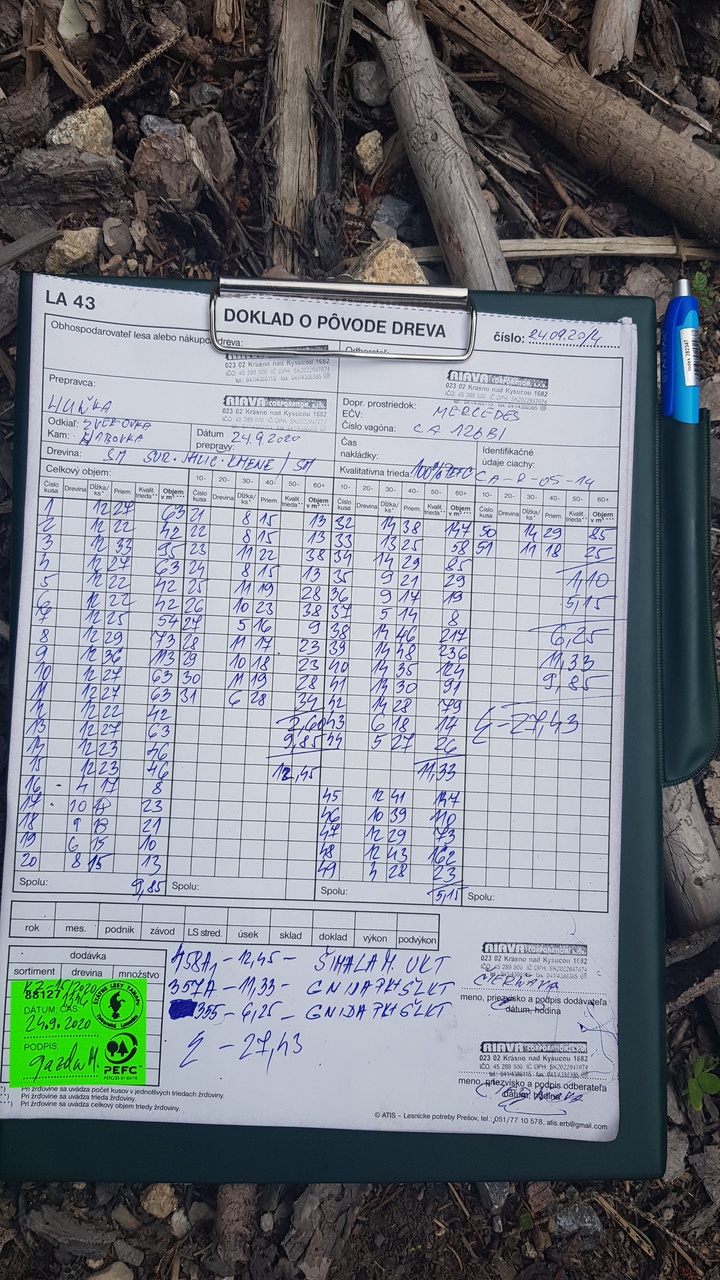 LA 43
DOKLAD O PÔVODE DREVA
číslo: 24.09.20/4
Obhospodarovateľ lesa alebo nákupca dreva:
Odberateľ:
RIAVA CORPORATION, s.r.o.
023 02 Krásno nad Kysucou 1682
RIAVA CORPORATION, s.r.o.
023 02 Krásno nad Kysucou 1682
Prepravca:
RIAVA CORPORATION, s.r.o.
023 02 Krásno nad Kysucou 1682
Dopr. prostriedok: MERCEDES
EČV:
Číslo vagóna: CA 126BI
Odkiaľ:
Kam:
Dátum prepravy: 24.9.2020
Čas nakládky:
Identifikačné údaje ciachy: CA-R-05-14
Drevina: SM
Kvalitatívna trieda: 100% PEFC
Celkový objem:
10- 20- 30- 40- 50- 60+
10- 20- 30- 40- 50- 60+
10- 20- 30- 40- 50- 60+
Číslo kusa Drevina Dĺžka/ks* Priem. Kvalit. trieda** Objem v m³ ***
1 12 27 63 21 8 15 13 32 14 38 147 50 14 29 85
2 12 22 42 22 8 15 13 33 13 25 58 51 11 18 25
3 12 33 95 23 11 22 38 34 14 29 85
4 12 27 63 24 8 15 13 35 9 21 29 1,10
5 12 22 42 25 11 19 28 36 9 17 19 5,15
6 12 22 42 26 10 23 38 37 5 14 8 6,25
7 12 25 54 27 5 16 9 38 14 46 217 11,33
8 12 29 73 28 11 17 23 39 14 48 236 9,85
9 12 36 113 29 10 18 23 40 14 35 124
10 12 27 63 30 11 19 28 41 14 30 91
11 12 27 63 31 6 28 34 42 14 28 79 Σ-27,43
12 22 42 2,60 43 6 18 14
13 12 27 63 9,85 44 5 27 26
14 12 23 46
15 12 23 46 12,45 11,33
16 4 17 8 45 12 41 147
17 10 18 23 46 10 39 110
18 9 18 21 47 12 29 73
19 6 15 10 48 12 43 162
20 8 15 13 49 4 28 23
Spolu: 9,85 Spolu: Spolu: 5,15 Spolu:
rok mes. podnik závod LS stred. úsek sklad doklad výkon podvýkon
dodávka
sortiment drevina množstvo
458A1 - 12,45 - ŠIMALA M. UKT
357A - 11,33 - GNIDA PK+ŠLKT
355 - 6,25 - GNIDA PK+ŠLKT
Σ - 27,43
88127
ŠTÁTNE LESY TANAP
DÁTUM, ČAS
24.9.2020
PODPIS
PEFC
RIAVA CORPORATION, s.r.o.
023 02 Krásno nad Kysucou 1682
meno, priezvisko a podpis dodávateľa
dátum, hodina
RIAVA CORPORATION, s.r.o.
023 02 Krásno nad Kysucou 1682
meno, priezvisko a podpis odberateľa
dátum, hodina
*) Pri žrďovine sa uvádza počet kusov v jednotlivých triedach žrďoviny.
**) Pri žrďovine sa uvádza trieda žrďoviny.
Pri žrďovine sa uvádza celkový objem triedy žrďoviny.
© ATIS – Lesnícke potreby Prešov, tel.: 051/77 10 578, atis.erb@gmail.com